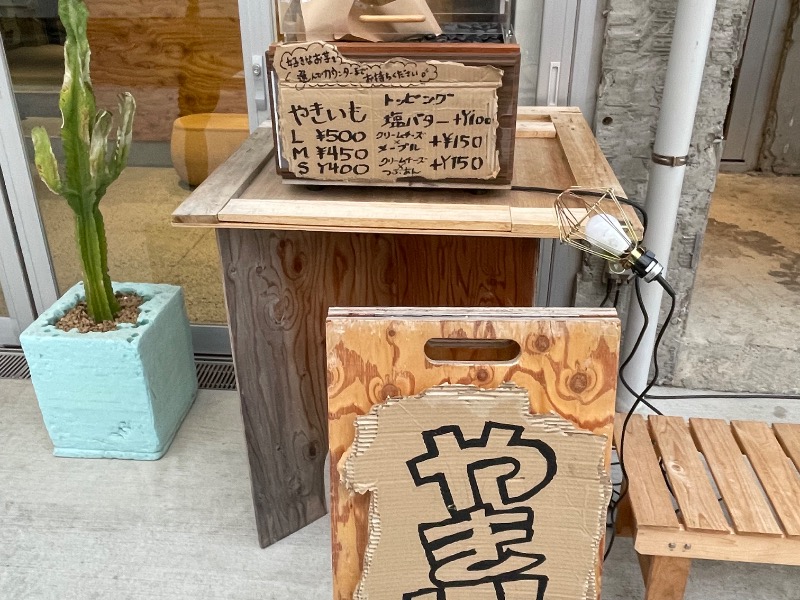 好きなお芋を
選んでカウンターまで
お持ちください。
やきいも
L ¥500
M ¥450
S ¥400
トッピング
塩バター +¥100
クリームチーズ
×
メープル +¥150
クリームチーズ
×
つぶあん +¥150
やき